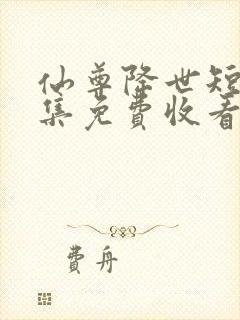 仙尊降世短
集免费收看
费舟